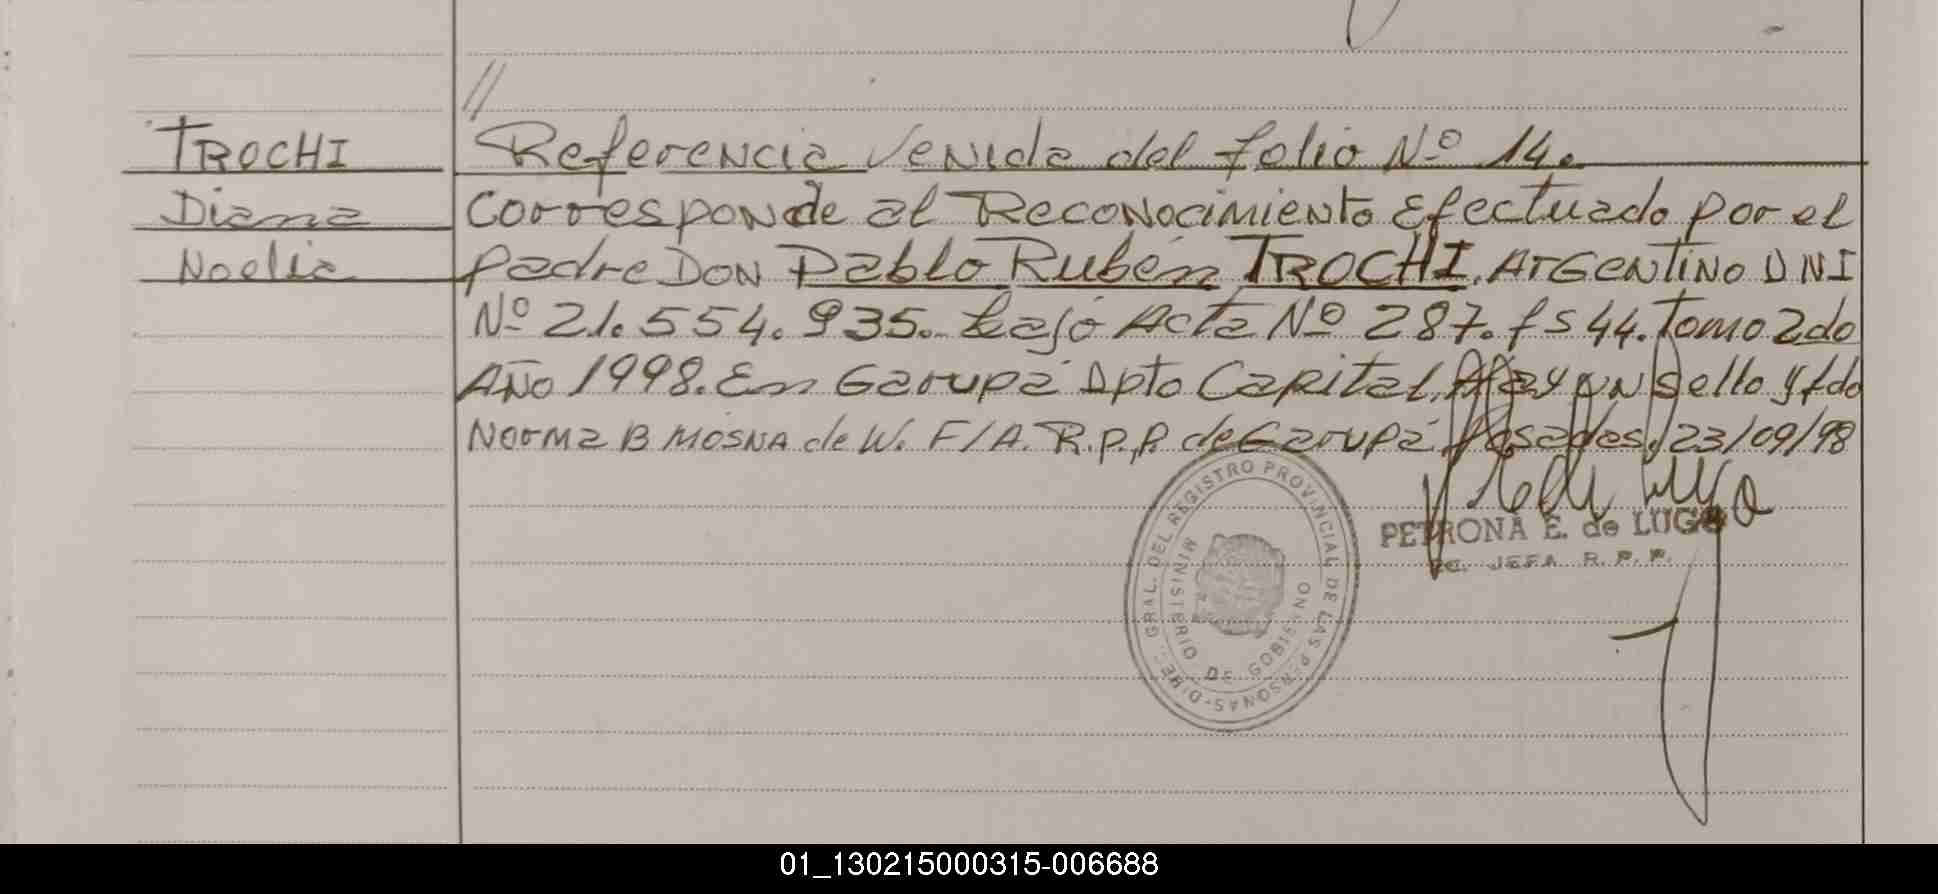 //
TROCHI Referencia Venida del folio Nº 14.
Diana Corresponde al Reconocimiento Efectuado por el
Noelia padre DON Pablo Rubén TROCHI. ArGentino DNI
Nº 21.554.935. bajo Acta Nº 287. fs 44. Tomo 2do
AÑO 1998. En Garupá Dpto Capital. Hay un Sello y fdo
Norma B MOSNA de W. F/A. R.P.P. de Garupá Posadas, 23/09/98
PETRONA E. de LUGO
JEFA R. P. P.
DIREC. GRAL. DEL REGISTRO PROVINCIAL DE LAS PERSONAS
MINISTERIO DE GOBIERNO
01_130215000315-006688